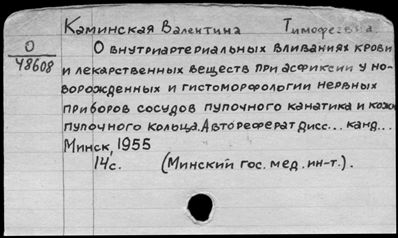 Каминская Валентина Тимофеевна
О
48608
О внутриартериальных вливаниях крови
и лекарственных веществ при асфиксии у но-
ворожденных и гистоморфологии нервных
приборов сосудов пупочного канатика и кожи
пупочного кольца. Автореферат дисс... канд...
Минск, 1955
14с. (Минский гос. мед. ин-т).